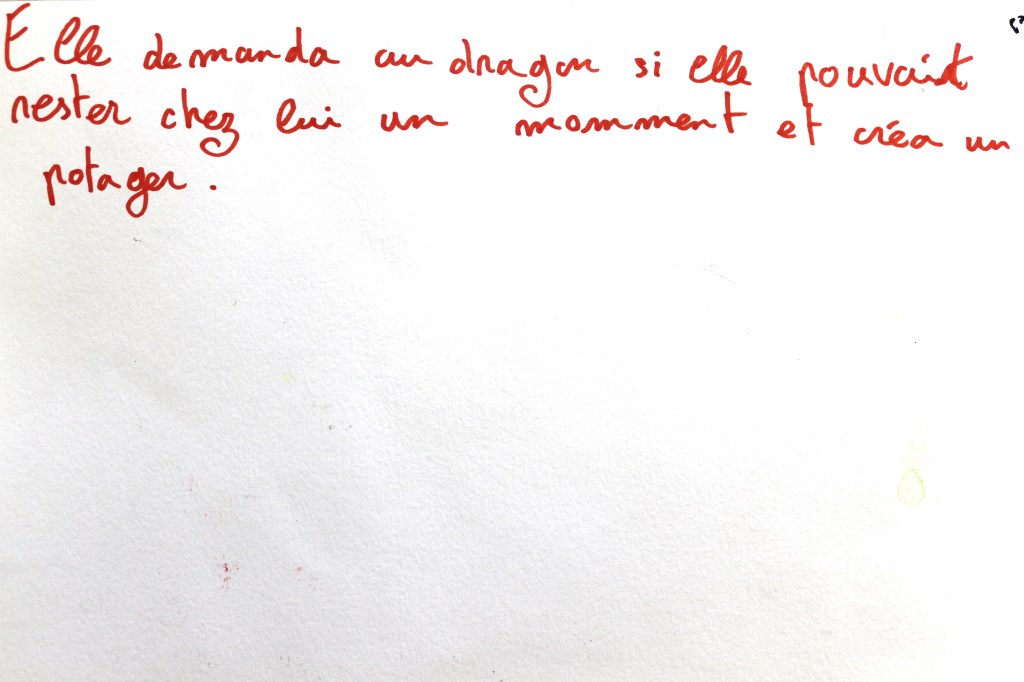 Elle demanda au dragon si elle pouvait
rester chez lui un momment et créa un
potager.